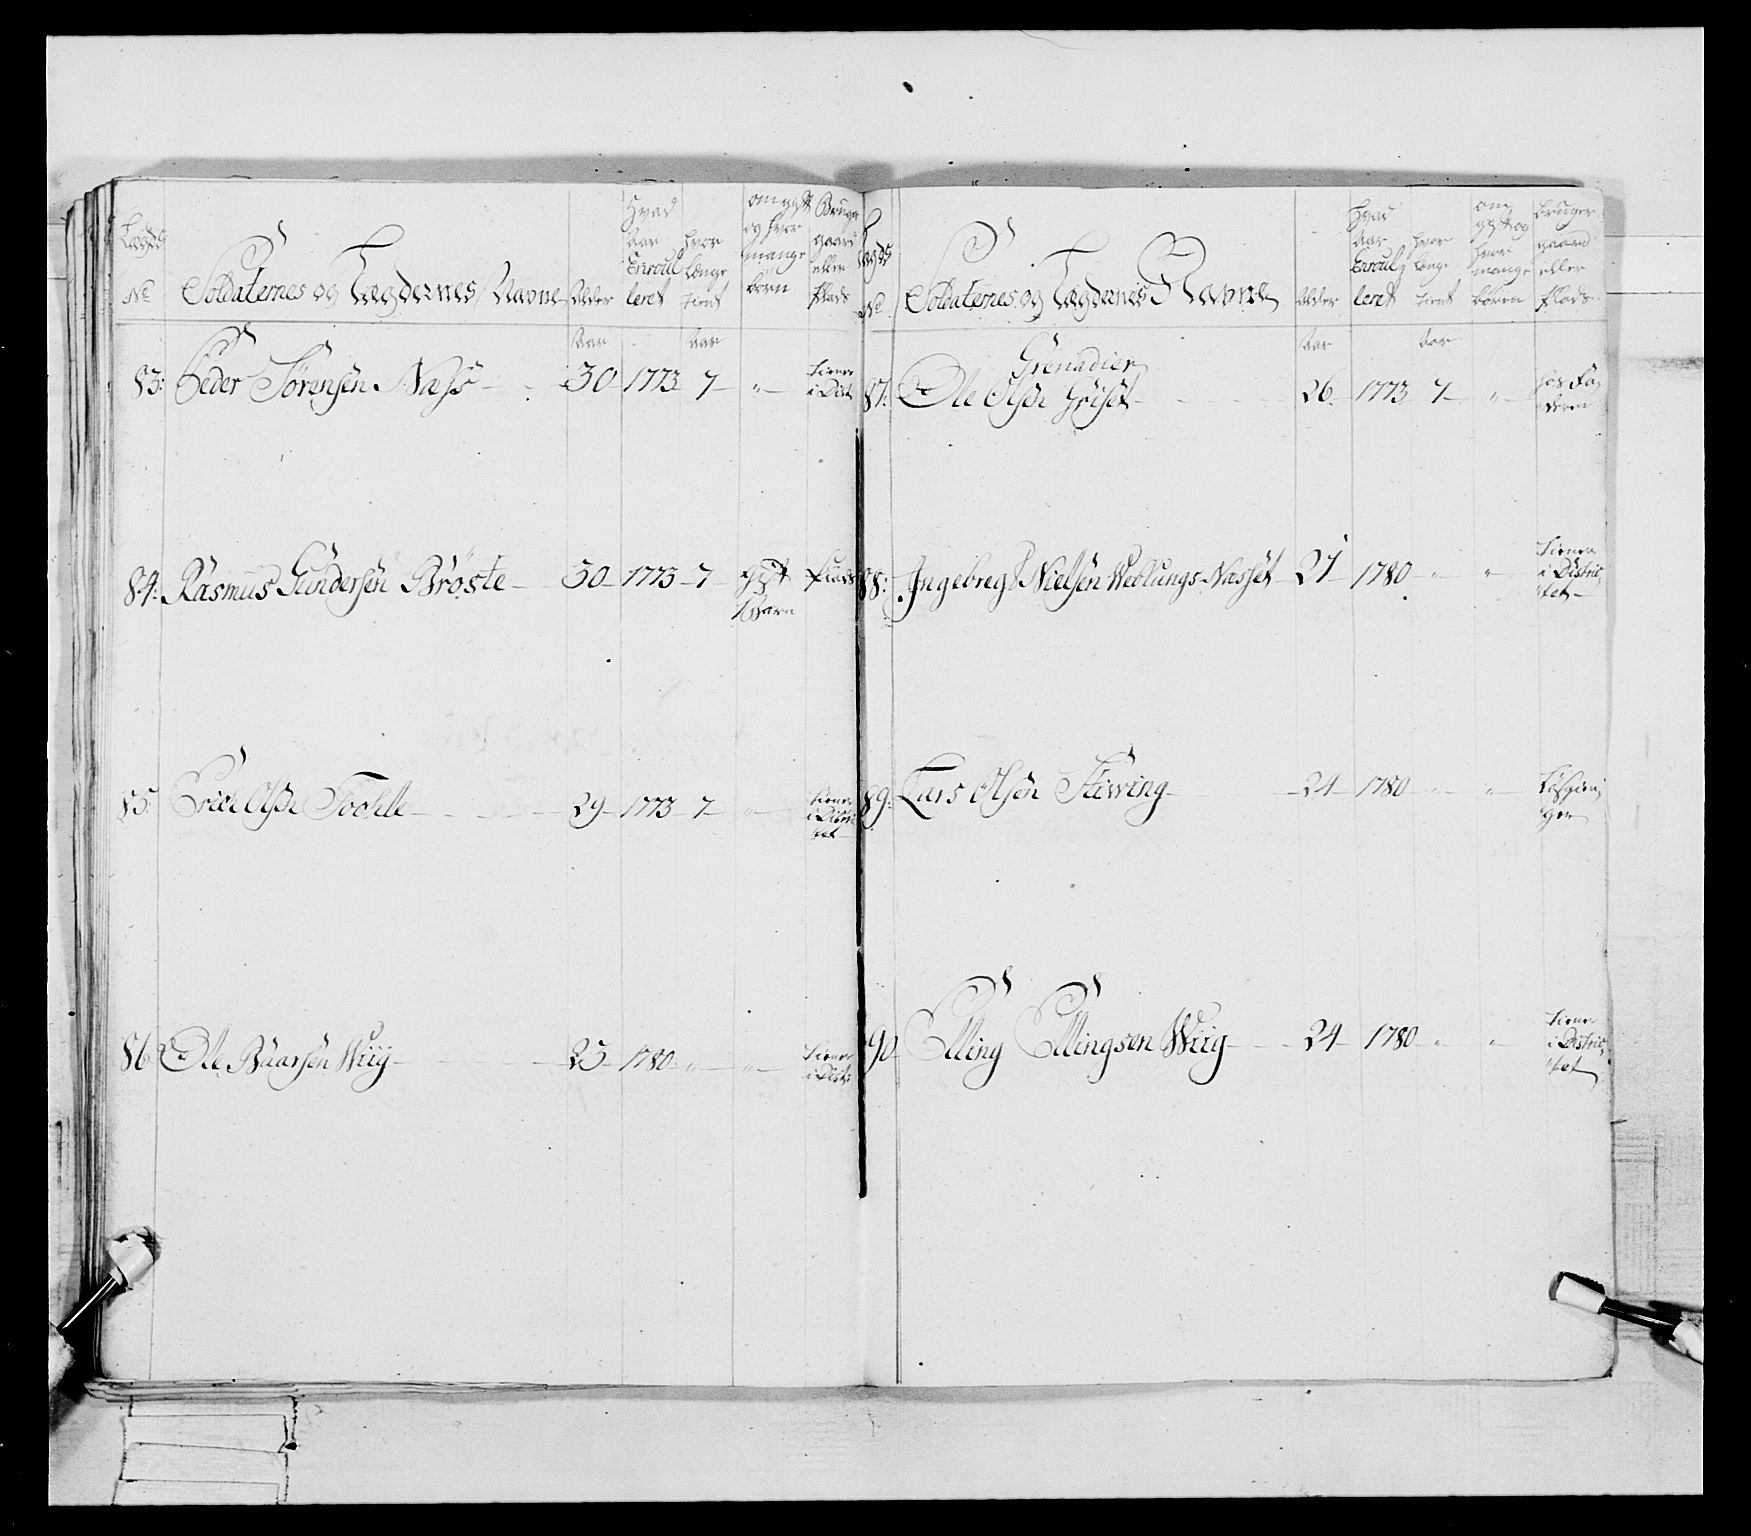 Lægds No Soldaternes og Lægdernes Navne Alder Hvad Aar Enroulleret hvor længe tient om gift og hvor mange børn Bruger gaard eller Plads
Aar Aar
83: Peder Sörensen Næss 30 1773 7 " tiener i Dist
84: Rasmus Gundersen Bröste 30 1773 7 gift 1 Barn Plads
85: Erich Olsen 29 1773 7 " tiener i Districtet
86 Ole Baarsen Wiig 25 1780 " " tiener i Dist:
Lægds No Soldaternes og Lægdernes Navne Alder Hvad Aar Enroulleret hvor længe tient om gift og hvor mange börn bruger gaard eller Plads
Aar Aar
Grenadier
87: Ole Olsen Griset 26 1773 7 " hos Faderen
88: Ingebregt Nielsen Weblungs Næsset 21 1780 " " tiener i Districtet
89: Lars Olsen 24 1780 " "
90 Elling Ellingsen Wiig 24 1780 " " tiener i Districtet